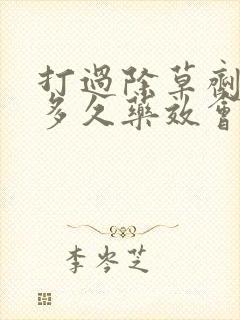 打過除草劑
多久藥效會
李岑芝